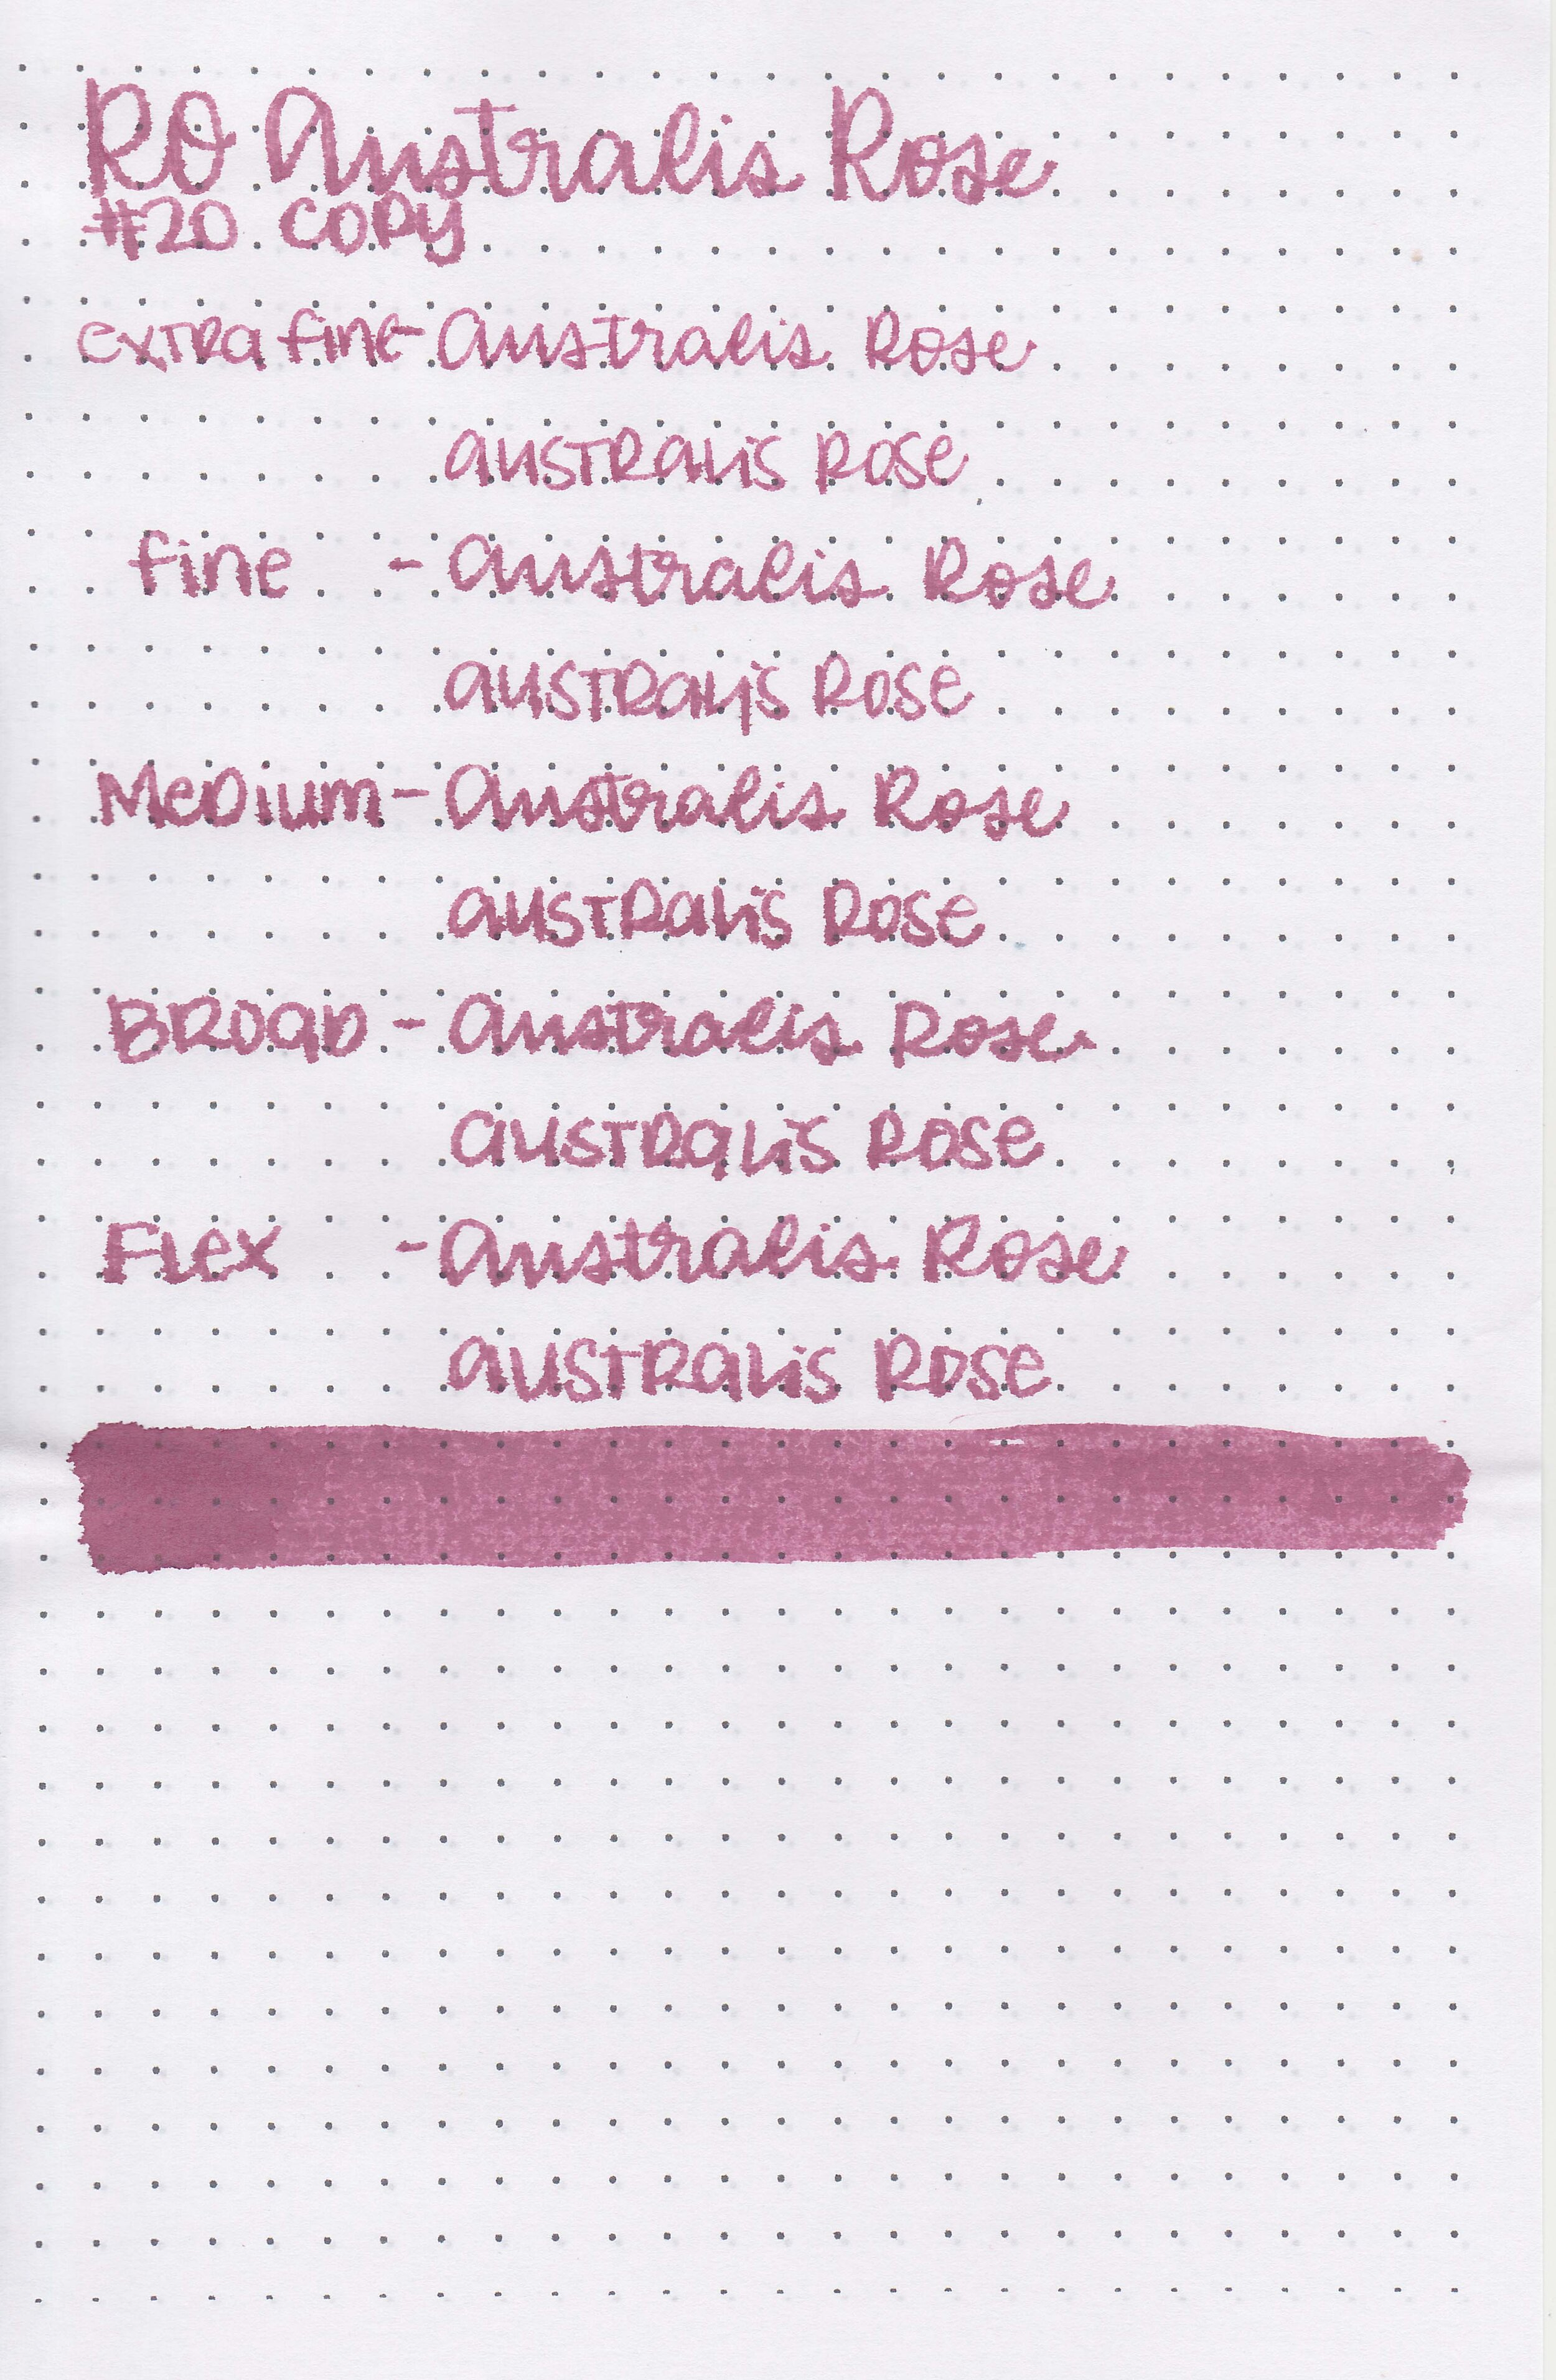 RO Australis Rose
#20 COPY
extra fine - Australis Rose
australis Rose
fine - Australis Rose
australis Rose
Medium - Australis Rose
australis Rose
Broad - Australis Rose
australis Rose
Flex - Australis Rose
australis Rose